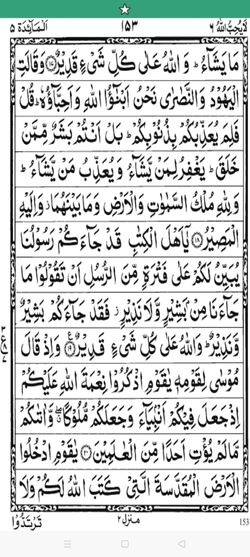 لَا يُحِبُّ اللهُ ٦ ١٥٣ اَلْمَآئِدَة ٥
مَا يَشَآءُ ؕ وَ اللهُ عَلٰى كُلِّ شَىْءٍ قَدِيْرٌ ﴿۱۷﴾ وَقَالَتِ
الْيَهُوْدُ وَالنَّصٰرٰى نَحْنُ اَبْنٰٓؤُا اللهِ وَاَحِبَّآؤُهٗ ؕ قُلْ
فَلِمَ يُعَذِّبُكُمْ بِذُنُوْبِكُمْ ؕ بَلْ اَنْتُمْ بَشَرٌ مِّمَّنْ
خَلَقَ ؕ يَغْفِرُ لِمَنْ يَّشَآءُ وَيُعَذِّبُ مَنْ يَّشَآءُ ؕ
وَلِلّٰهِ مُلْكُ السَّمٰوٰتِ وَالْاَرْضِ وَمَا بَيْنَهُمَا ؗ وَاِلَيْهِ
الْمَصِيْرُ ﴿۱۸﴾ يٰٓاَهْلَ الْكِتٰبِ قَدْ جَآءَكُمْ رَسُوْلُنَا
يُبَيِّنُ لَكُمْ عَلٰى فَتْرَةٍ مِّنَ الرُّسُلِ اَنْ تَقُوْلُوْا مَا
جَآءَنَا مِنْۢ بَشِيْرٍ وَّلَا نَذِيْرٍ ؗ فَقَدْ جَآءَكُمْ بَشِيْرٌ
وَّنَذِيْرٌ ؕ وَاللهُ عَلٰى كُلِّ شَىْءٍ قَدِيْرٌ ﴿۱۹﴾ وَاِذْ قَالَ
مُوْسٰى لِقَوْمِهٖ يٰقَوْمِ اذْكُرُوْا نِعْمَةَ اللهِ عَلَيْكُمْ
اِذْ جَعَلَ فِيْكُمْ اَنْۢبِيَآءَ وَجَعَلَكُمْ مُّلُوْكًا ۖ وَّاٰتٰىكُمْ
مَّا لَمْ يُؤْتِ اَحَدًا مِّنَ الْعٰلَمِيْنَ ﴿۲۰﴾ يٰقَوْمِ ادْخُلُوا
الْاَرْضَ الْمُقَدَّسَةَ الَّتِىْ كَتَبَ اللهُ لَكُمْ وَلَا
تَرْتَدُّوْا منزل ٢ 153